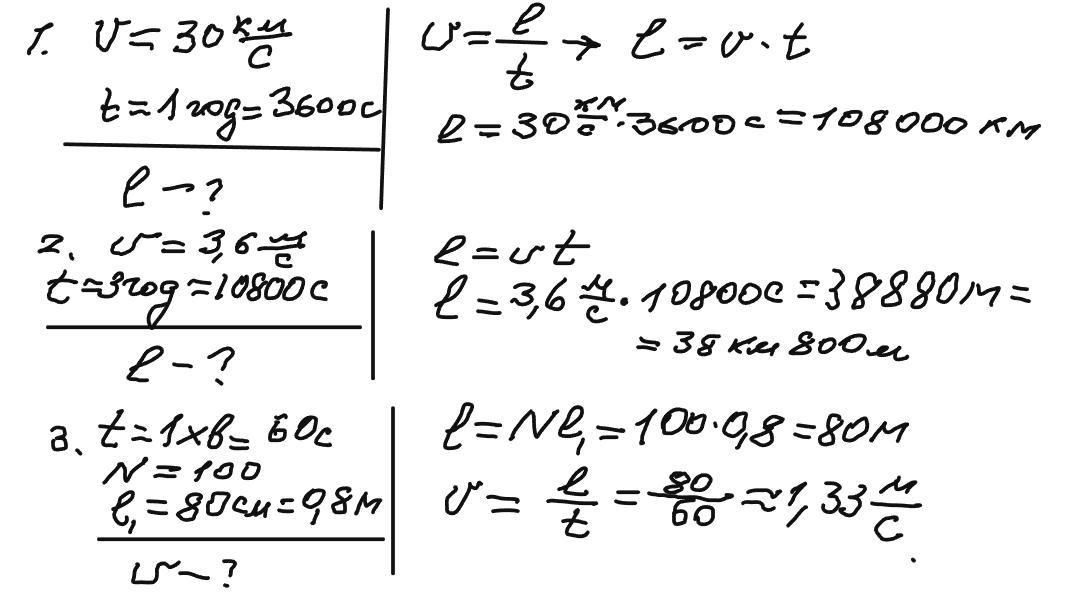 1. v = 30 км/с
t = 1 год = 3600 с
l – ?
v = l/t → l = v · t
l = 30 км/с · 3600 с = 108000 км
2. v = 3,6 м/с
t = 3 год = 10800 с
l – ?
l = v t
l = 3,6 м/с · 10800 с = 38880 м =
= 38 км 800 м
3. t = 1 хв = 60 с
N = 100
l₁ = 80 см = 0,8 м
v – ?
l = N l₁ = 100 · 0,8 = 80 м
v = l/t = 80/60 ≈ 1,33 м/с.